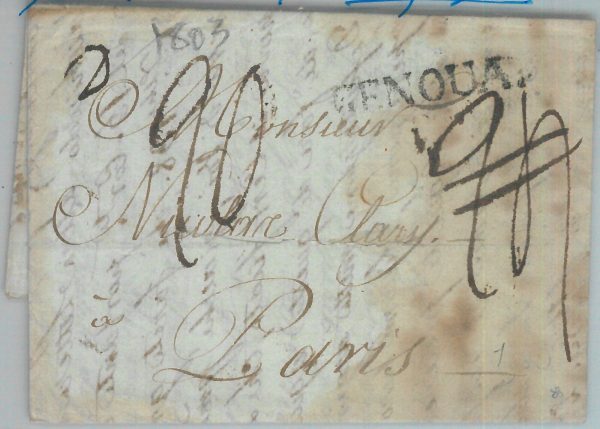 1803
GENOUA.
Monsieur
Nicolas Clary.
à
Paris